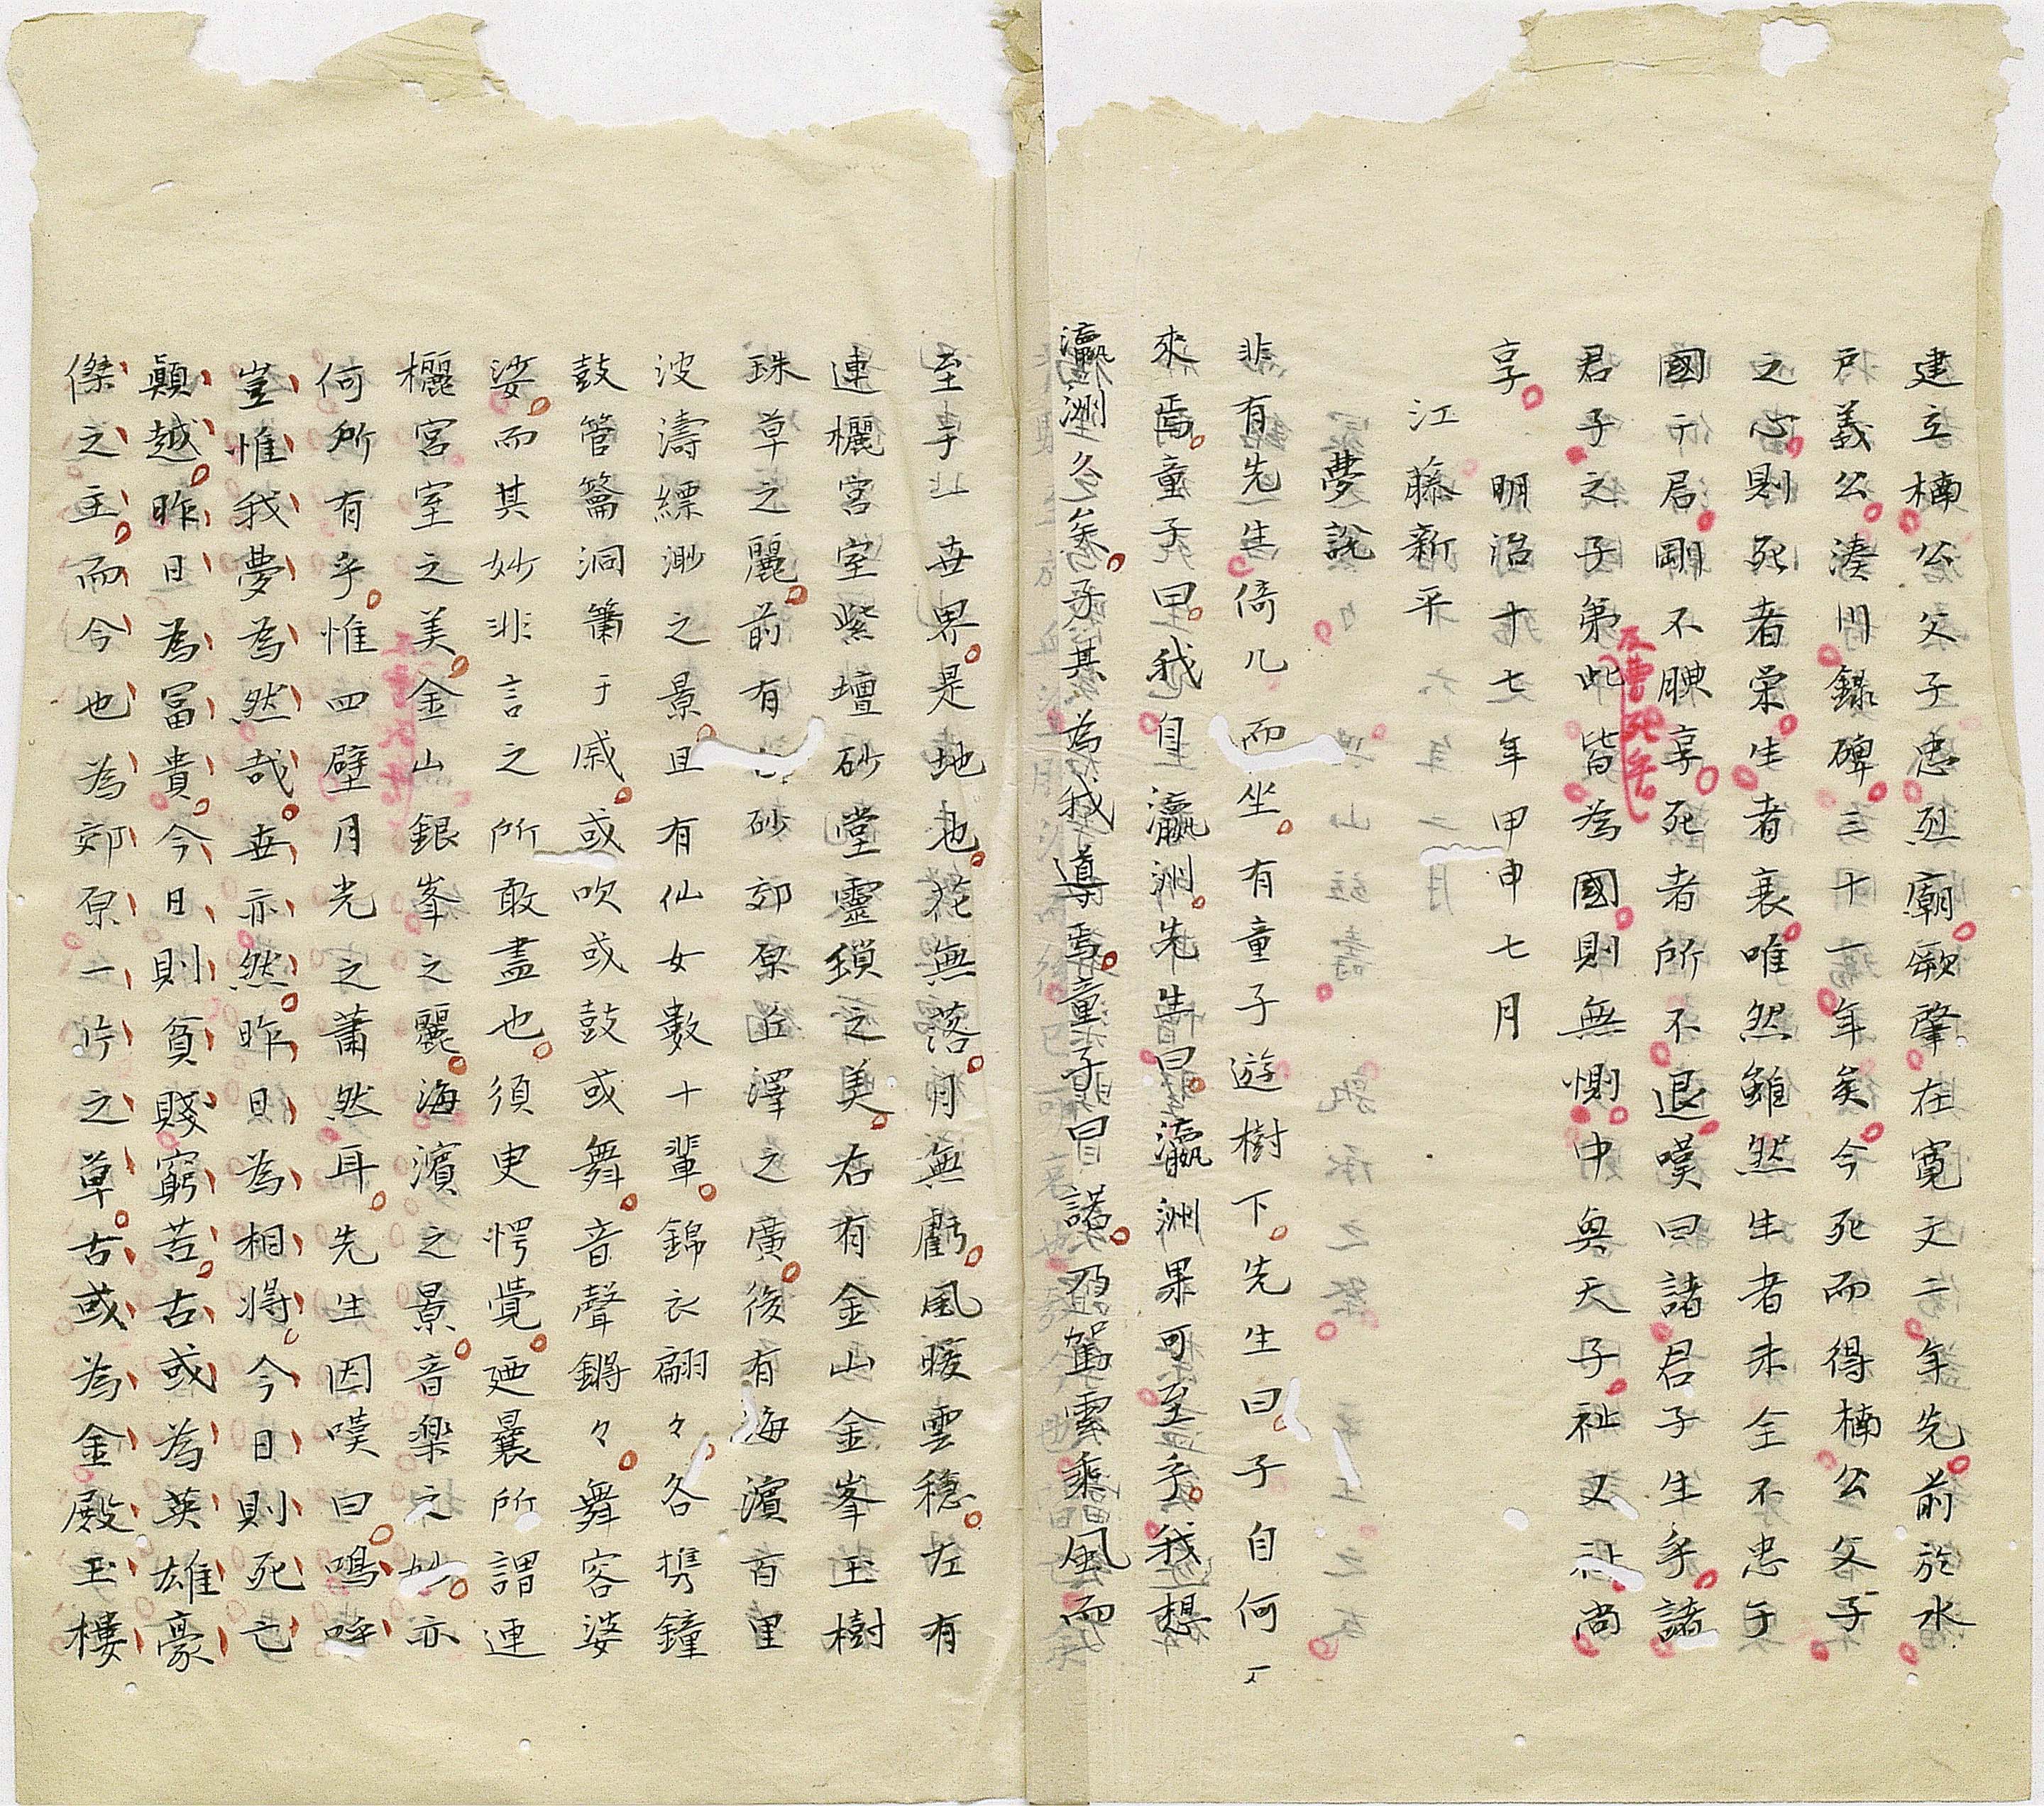 建立楠公父子忠烈廟厥肇在寛文二年先前於水
戸義公湊川録碑三十一年矣今死而得楠公父子
之心則死者栄生者衰唯然雖然生者未全不忠于
國于君剛不腆享死者所不退嘆曰諸君子生乎諸
君子之子弟此皆為國則無惻中與天子祉又祉尚
享
明治十七年甲申七月
江藤新平
夢説
非有先生倚几而坐有童子遊樹下先生曰子自何
來焉童子曰我自瀛洲先生曰瀛洲果可至乎我想
瀛洲久矣子其為我導焉童子曰諾乃駕雲乘風而
至乎世界是地也花無落月無虧風暖雲穏左有
連欐宮室紫壇砂堂靈鎖之美右有金山金峯玉樹
珠草之麗前有砂郊原丘澤之廣後有海濱百里
波濤縹渺之景且有仙女數十輩錦衣翩々各携鐘
鼓管籥洞簫于戚或吹或鼓或舞音聲鏘々舞容婆
娑而其妙非言之所敢盡也須臾愕覺廼曩所謂連
欐宮室之美金山銀峯之麗海濱之景音楽之妙亦
何所有乎惟四壁月光之蕭然耳先生因嘆曰嗚呼
豈惟我夢為然哉世亦然昨日為相将今日則死亡
顛越昨日為冨貴今日則貧賤窮苦古或為英雄豪
傑之主而今也為郊原一片之草古或為金殿玉樓